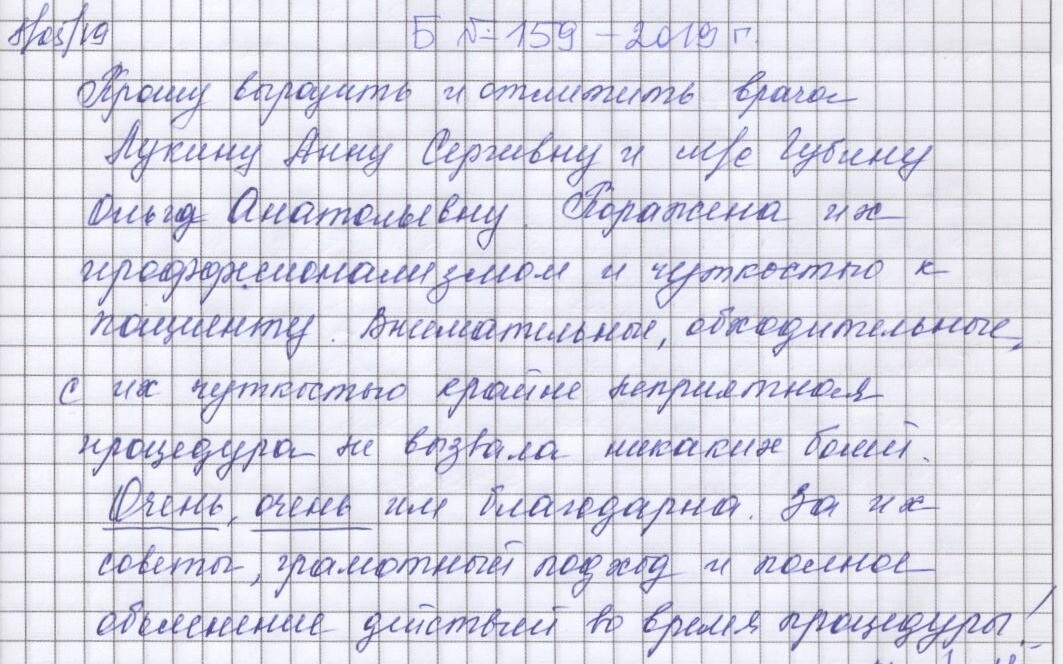 8/05/19 Б № 159 – 2019 г.
Прошу выразить и отметить врача
Лукину Анну Сергеевну и м/с Губину
Ольгу Анатольевну. Поражена их
профессионализмом и чуткостью к
пациенту. Внимательные, обходительные,
с их чуткостью крайне неприятная
процедура не вызвала никаких болей.
Очень, очень им благодарна. За их
советы, грамотный подход и полное
объяснение действий во время процедуры!